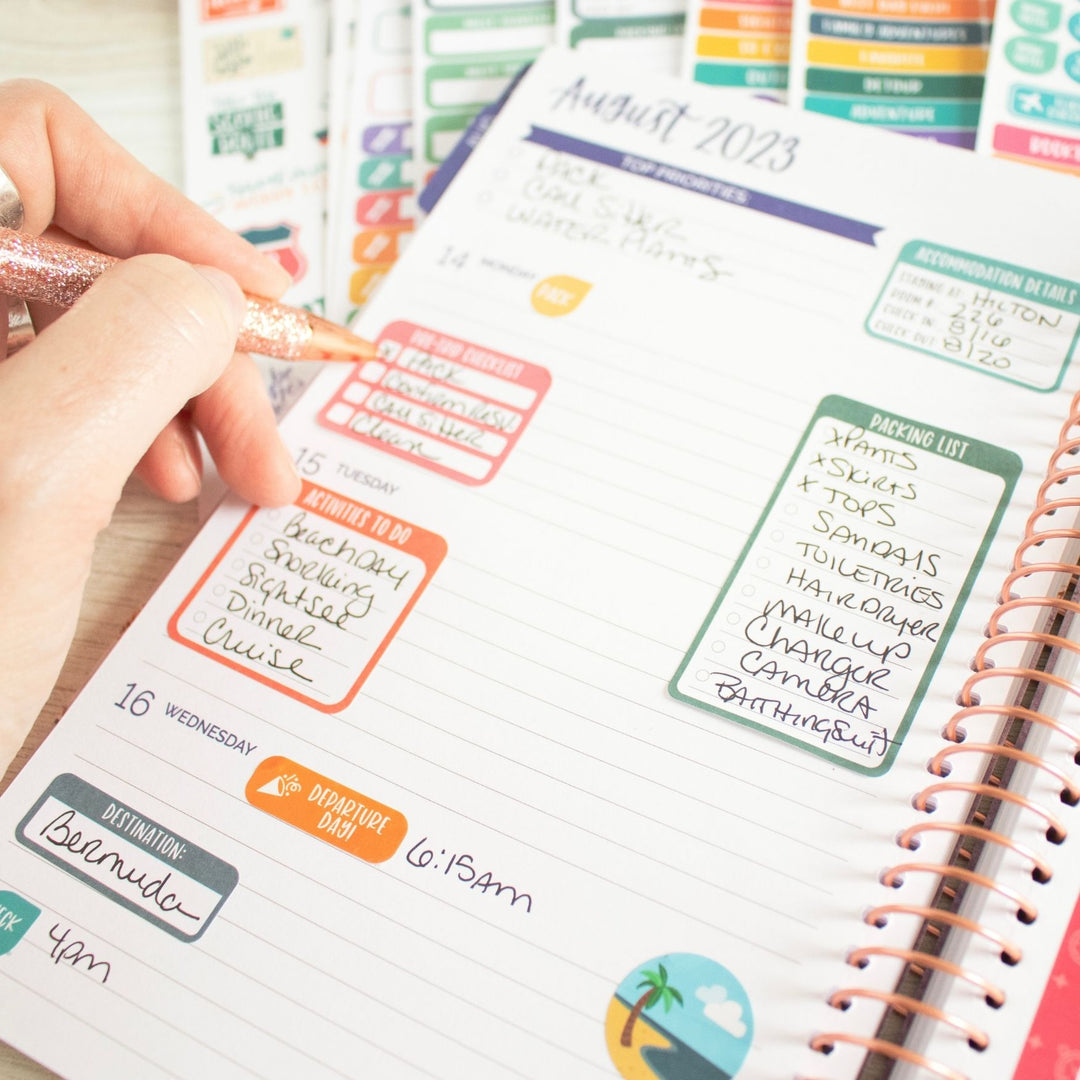 August 2023
TOP PRIORITIES
PACK
CALL SITTER
WATER PLANTS
14 MONDAY
PACK
ACCOMMODATION DETAILS
STAYING AT: HILTON
ROOM #: 226
CHECK IN: 8/16
CHECK OUT: 8/20
PRE-TRIP CHECKLIST
x PACK
Confirm Resv.
CALL SITTER
Clean
PACKING LIST
xPANTS
xSKIRTS
x TOPS
SANDALS
TOILETRIES
HAIRDRYER
MAKEUP
CHARGER
CAMERA
BATHINGSUIT
15 TUESDAY
ACTIVITIES TO DO
BeachDAY
Snorkling
Sightsee
Dinner
Cruise
16 WEDNESDAY
DEPARTURE
DAY!
6:15AM
DESTINATION:
Bermuda
4pm
SUMMER ADVENTURES
DETOUR
ADVENTURE